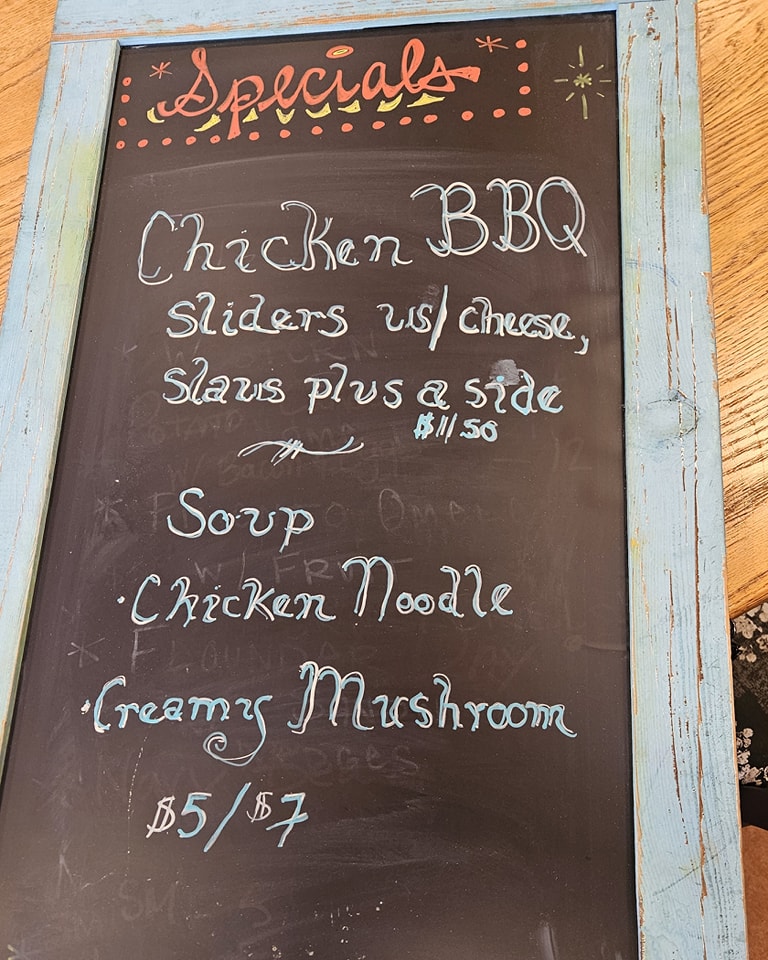 Specials
Chicken BBQ
sliders w/ cheese,
slaw plus a side
$11/50
Soup
·Chicken Noodle
·Creamy Mushroom
$5/$7